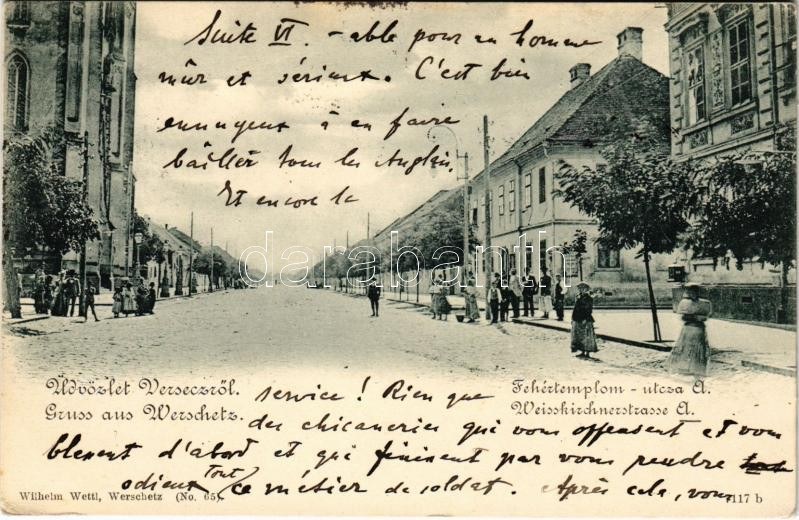 Suite VI. - able pour un homme
mûr et sérieux. C'est bien
ennuyeux à en faire
bâiller tous les Anglais.
Et encore le
darabanth
Üdvözlet Verseczről.
Gruss aus Werschetz.
Fehértemplom - utcza A.
Weisskirchnerstrasse A.
service! Rien que
des chicaneries qui vous offensent et vous
blessent d'abord et qui finissent par vous rendre
odieux Tout ce métier de soldat. Après cela, vous
Wilhelm Wettl, Werschetz (No. 65).
7117 b